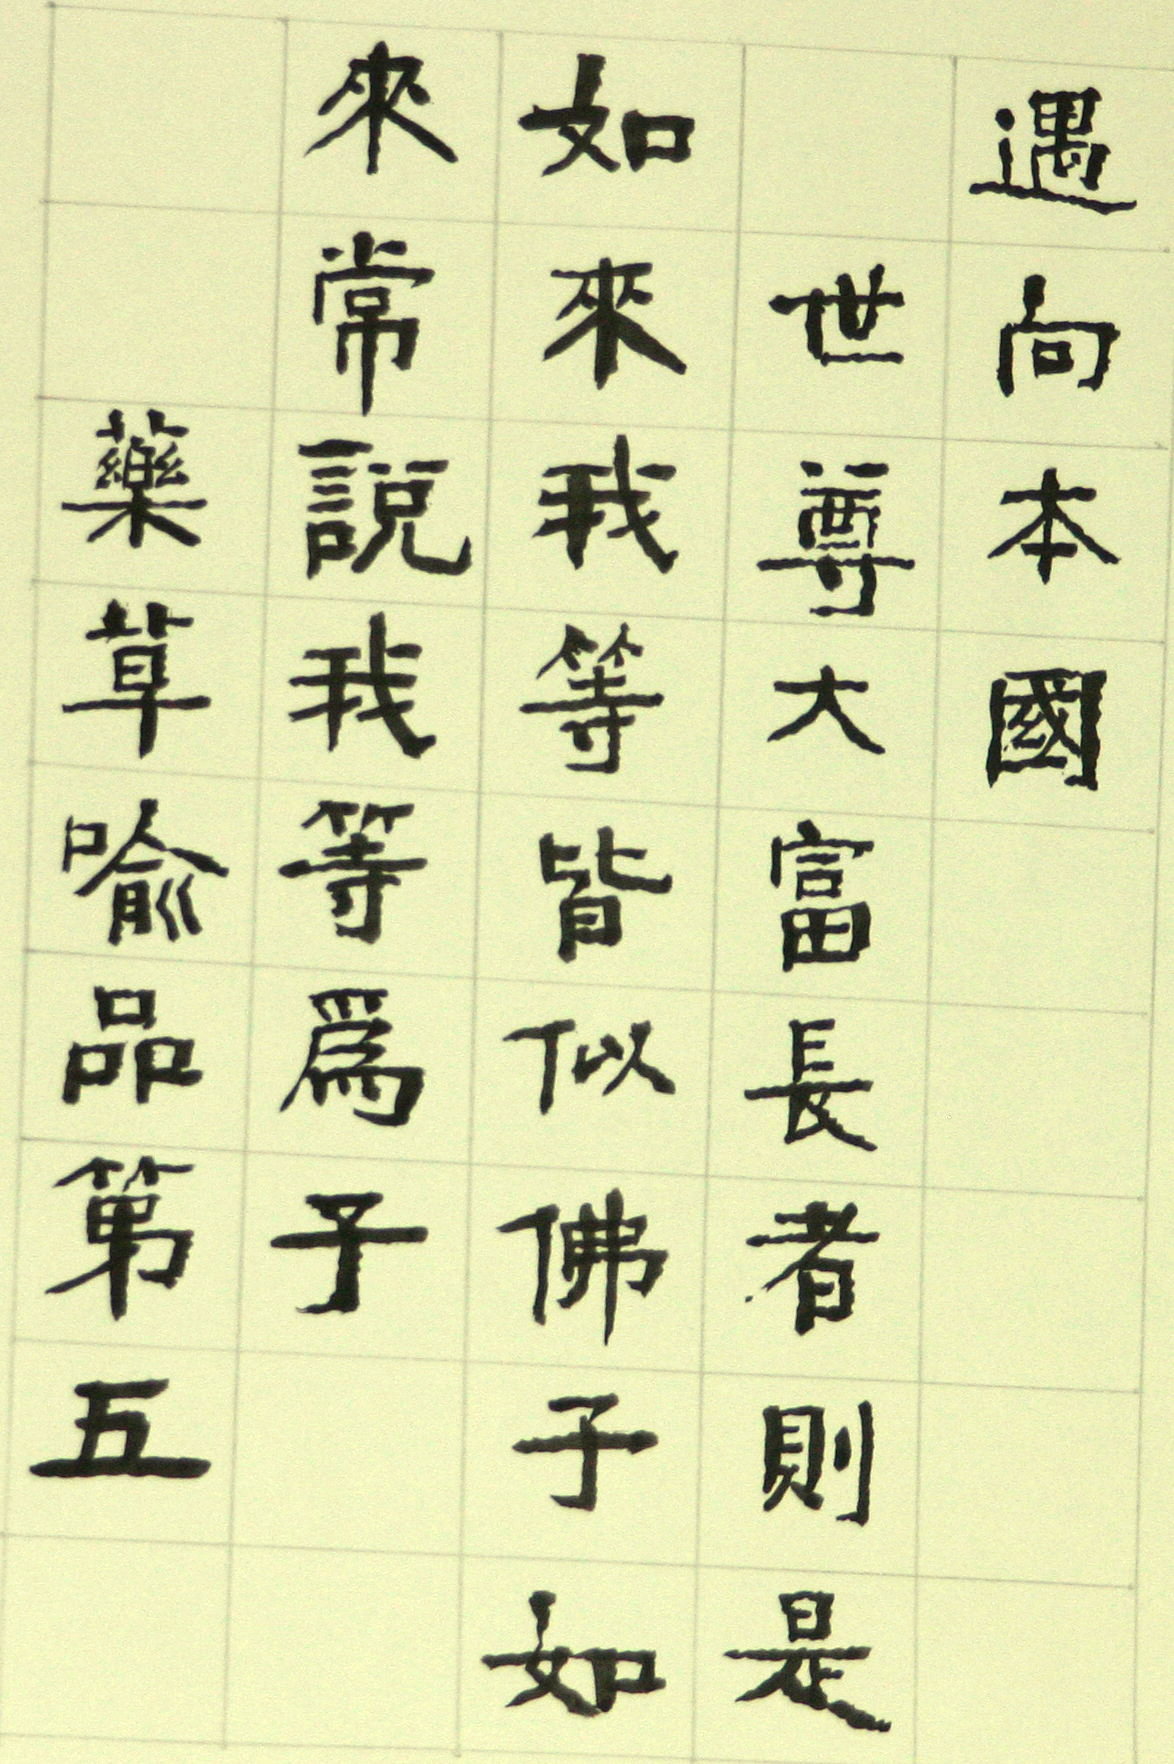 遇向本國
世尊大富長者則是
如來我等皆似佛子如
來常說我等爲子
藥草喻品第五